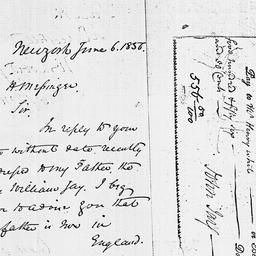 New York June 6. 1856.
A Messinger.
Sir.
In reply to your
without date recently
to my Father, the
Williams Jay. I beg
to advise you that
father is now in
England.
Pay to Mr Henry White
five hundred & fifty six
and 50 Cents
556 50/100
John Jay